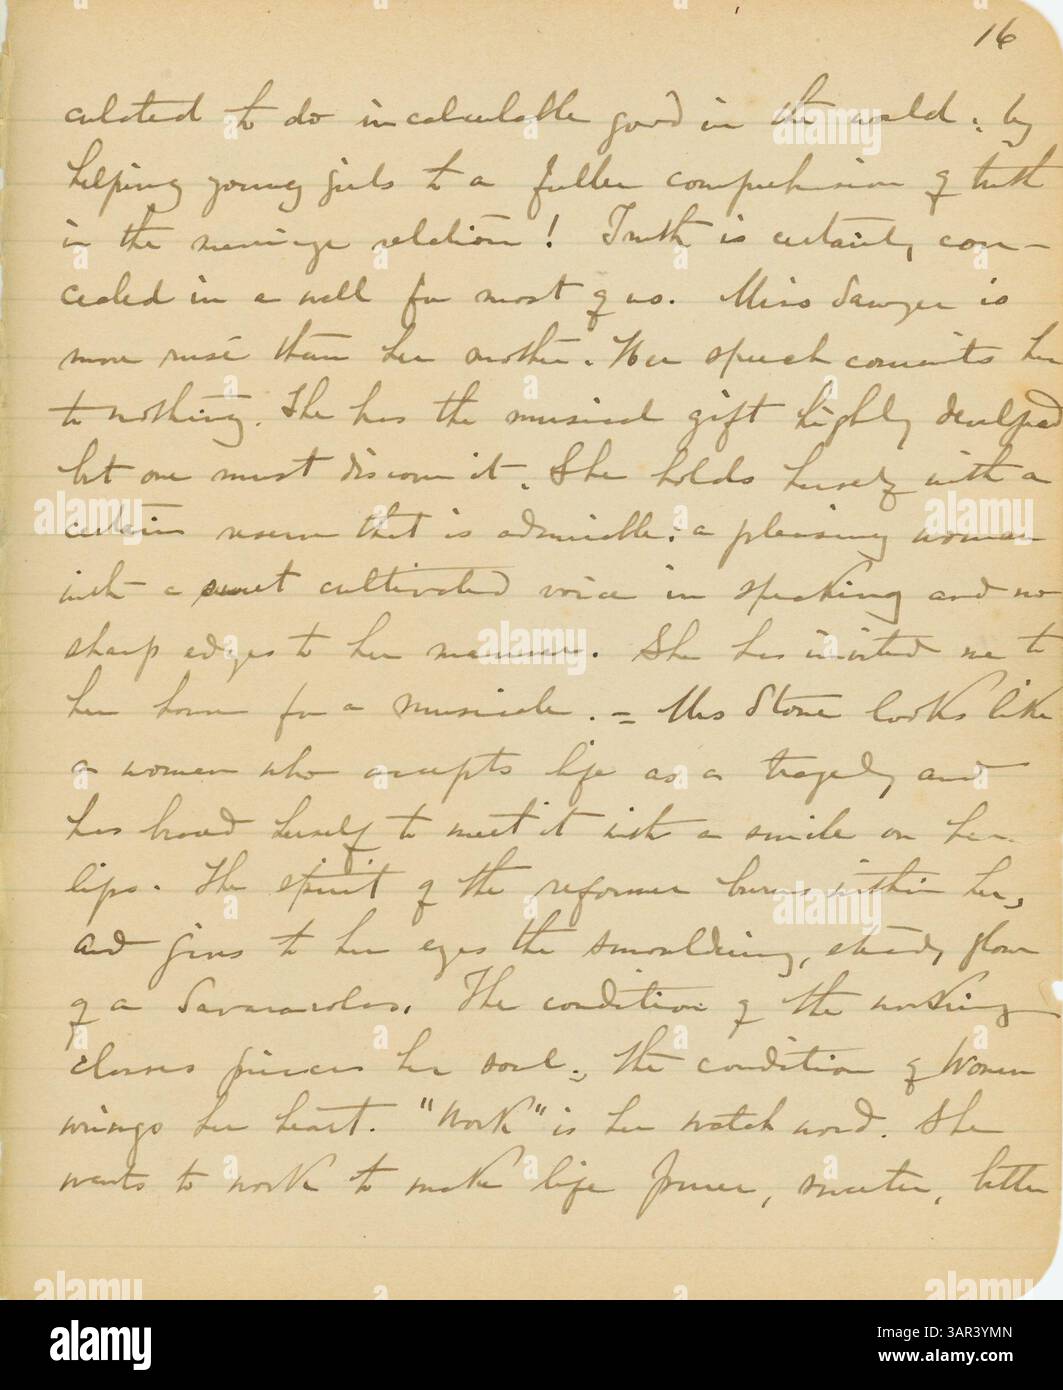 16
culated to do incalculable good in the world; by
helping young girls to a fuller comprehension of truth
in the marriage relation! Truth is certainly con-
cealed in a well for most of us. Miss Sawyer is
more rusé than her mother. Her speech commits her
to nothing. She has the musical gift highly developed
but one must discover it. She holds herself with a
certain reserve that is admirable: a pleasing woman
with a sweet cultivated voice in speaking and no
sharp edges to her manner. She has invited me to
her home for a musicale. = Mrs Stone looks like
a woman who accepts life as a tragedy and
has braced herself to meet it with a smile on her
lips. The spirit of the reformer burns within her,
and gives to her eyes the smouldering, steady glow
of a Savanarolas. The condition of the working
classes pierces her soul; the condition of Women
wrings her heart. "Work" is her watch word. She
wants to work to make life purer, sweeter, better
alamy
a
www.alamy.com
Image ID: 3AR3YMN